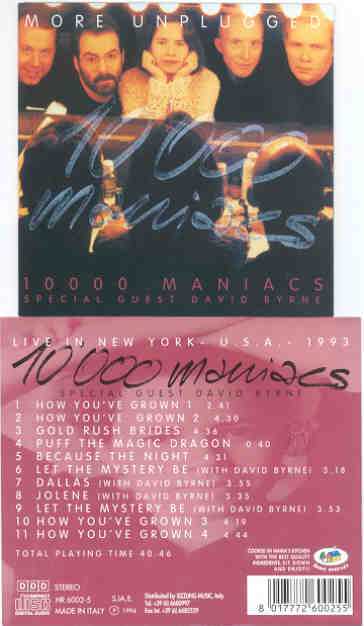 MORE UNPLUGGED
10 000
maniacs
10000 MANIACS
SPECIAL GUEST DAVID BYRNE
LIVE IN NEW YORK - U.S.A. - 1993
10 000 maniacs
SPECIAL GUEST DAVID BYRNE
1 HOW YOU'VE GROWN 1 2.41
2 HOW YOU'VE GROWN 2 4.30
3 GOLD RUSH BRIDES 4.36
4 PUFF THE MAGIC DRAGON 0:40
5 BECAUSE THE NIGHT 4.31
6 LET THE MYSTERY BE (WITH DAVID BYRNE) 3.18
7 DALLAS (WITH DAVID BYRNE) 3.55
8 JOLENE (WITH DAVID BYRNE) 3.35
9 LET THE MYSTERY BE (WITH DAVID BYRNE) 3.53
10 HOW YOU'VE GROWN 3 4.19
11 HOW YOU'VE GROWN 4 4:44
TOTAL PLAYING TIME 40.46
COOKED IN MAMA'S KITCHEN
WITH THE BEST QUALITY
INGREDIENTS, SIT DOWN
AND ENJOY!!
DDD STEREO
HR 6002-5 S.I.A.E.
COMPACT
disc
DIGITAL AUDIO
MADE IN ITALY
1994
Distributed by KIZZUNG MUSIC, Italy
8 017772 600255